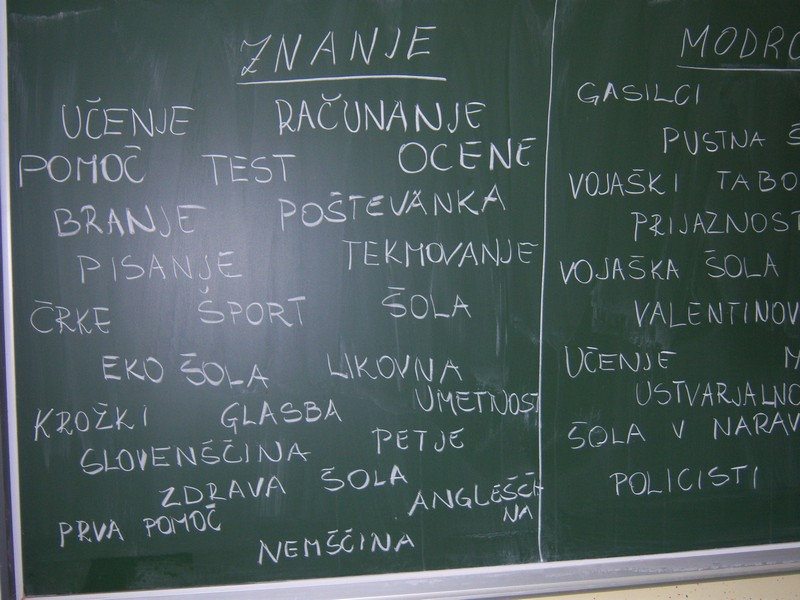 ZNANJE
UČENJE RAČUNANJE
POMOČ TEST OCENE
BRANJE POŠTEVANKA
PISANJE TEKMOVANJE
ČRKE ŠPORT ŠOLA
EKO ŠOLA LIKOVNA
UMETNOST
KROŽKI GLASBA
SLOVENŠČINA PETJE
ZDRAVA ŠOLA
ANGLEŠČI
NA
PRVA POMOČ
NEMŠČINA
MODRO
GASILCI
PUSTNA Š
VOJAŠKI TABO
PRIJAZNOST
VOJAŠKA ŠOLA
VALENTINOV
UČENJE M
USTVARJALNO
ŠOLA V NARAV
POLICISTI